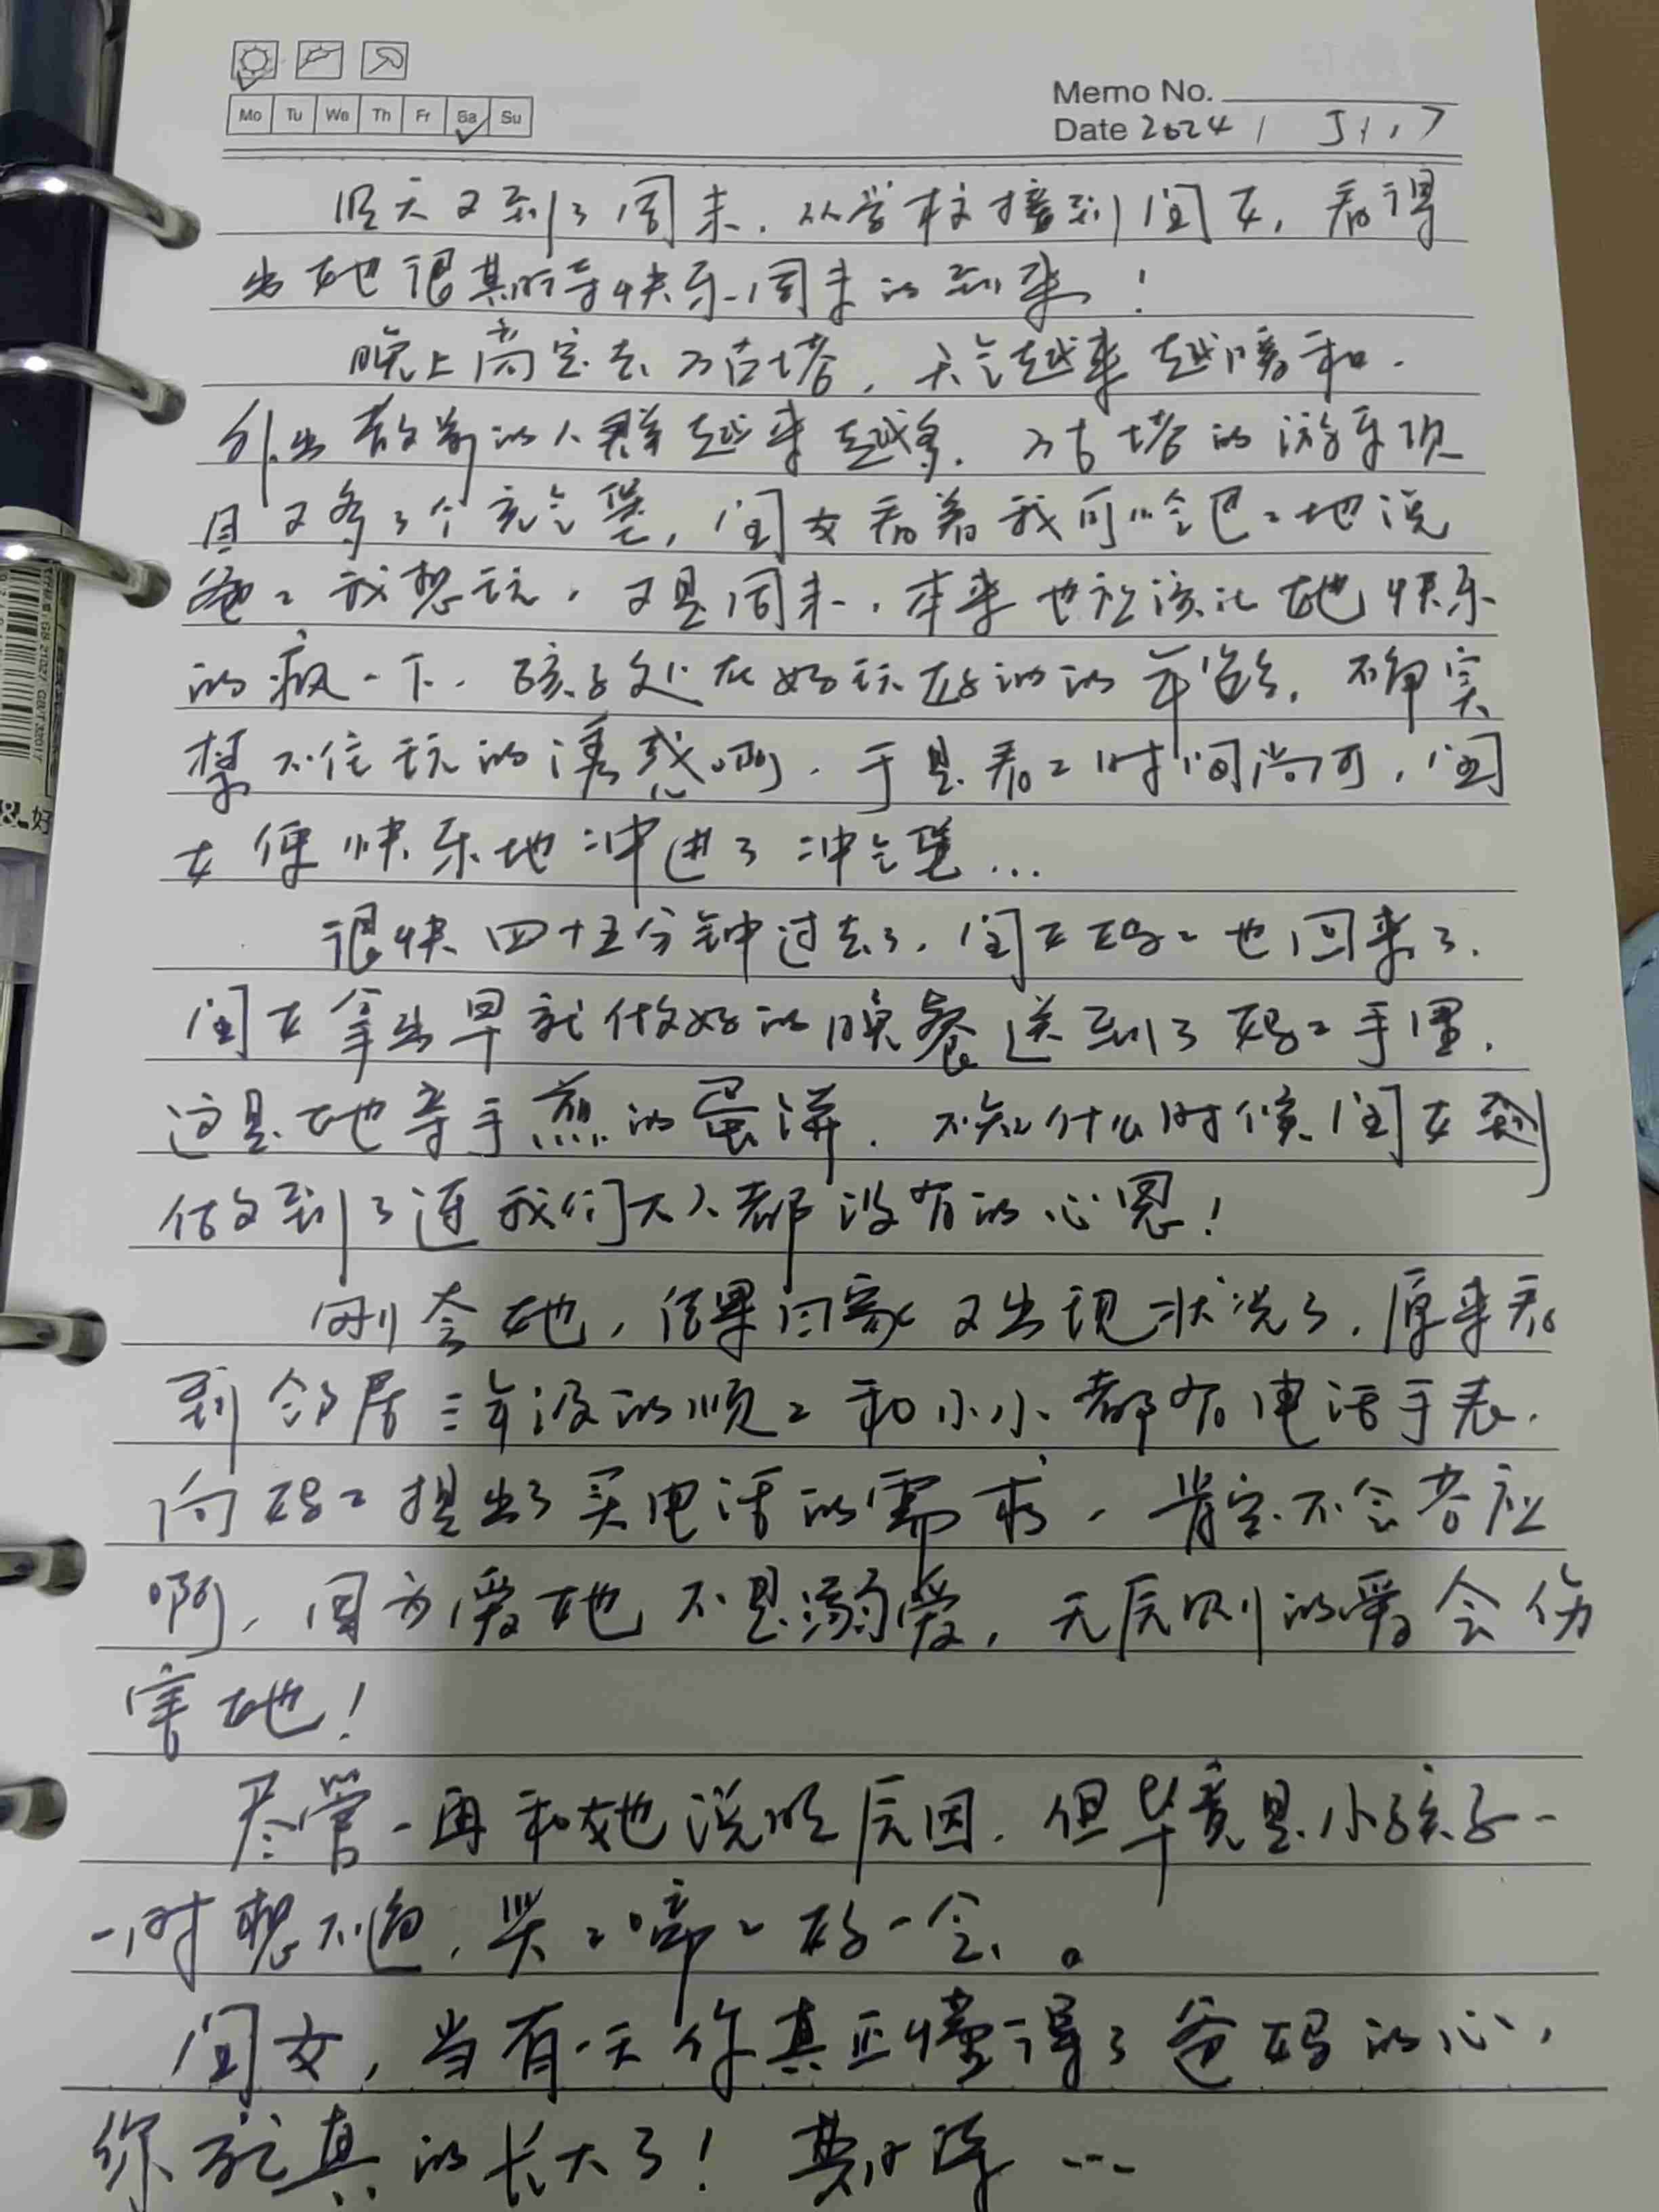 Mo Tu We Th Fr Sa Su
Memo No.
Date 2024 / 5/17
昨天又到了周末，从学校接到闺女，看得
出她很期待快乐周末的到来！
晚上商定去万古塔，天气越来越暖和．
外出散步的人群越来越多．万古塔的游乐项
目又多了个充气堡，闺女看着我可怜巴巴地说
爸爸我想玩，又是周末，本来也应该让她快乐
的疯一下．孩子处在好玩好动的年龄，确实
禁不住玩的诱惑啊．于是看看时间尚可，闺
女便快乐地冲进了冲气堡…
很快四十五分钟过去了，闺女妈妈也回来了．
闺女拿出早就做好的晚餐送到了妈妈手里．
这是她亲手煎的蛋饼．不知什么时候闺女到
做到了连我们大人都没有的心思！
刚夸她，结果回家又出现状况了，原来看
到邻居三年没的顺顺和小小都有电话手表．
向妈妈提出了买电话的需求，肯定不会答应
啊，因为爱她不是溺爱，无原则的爱会伤
害她！
尽管一再和她说明原因．但毕竟是小孩子一
一时想不通，哭哭啼啼好一会。
闺女，当有一天你真正懂得了爸妈的心，
你就真的长大了！期待…